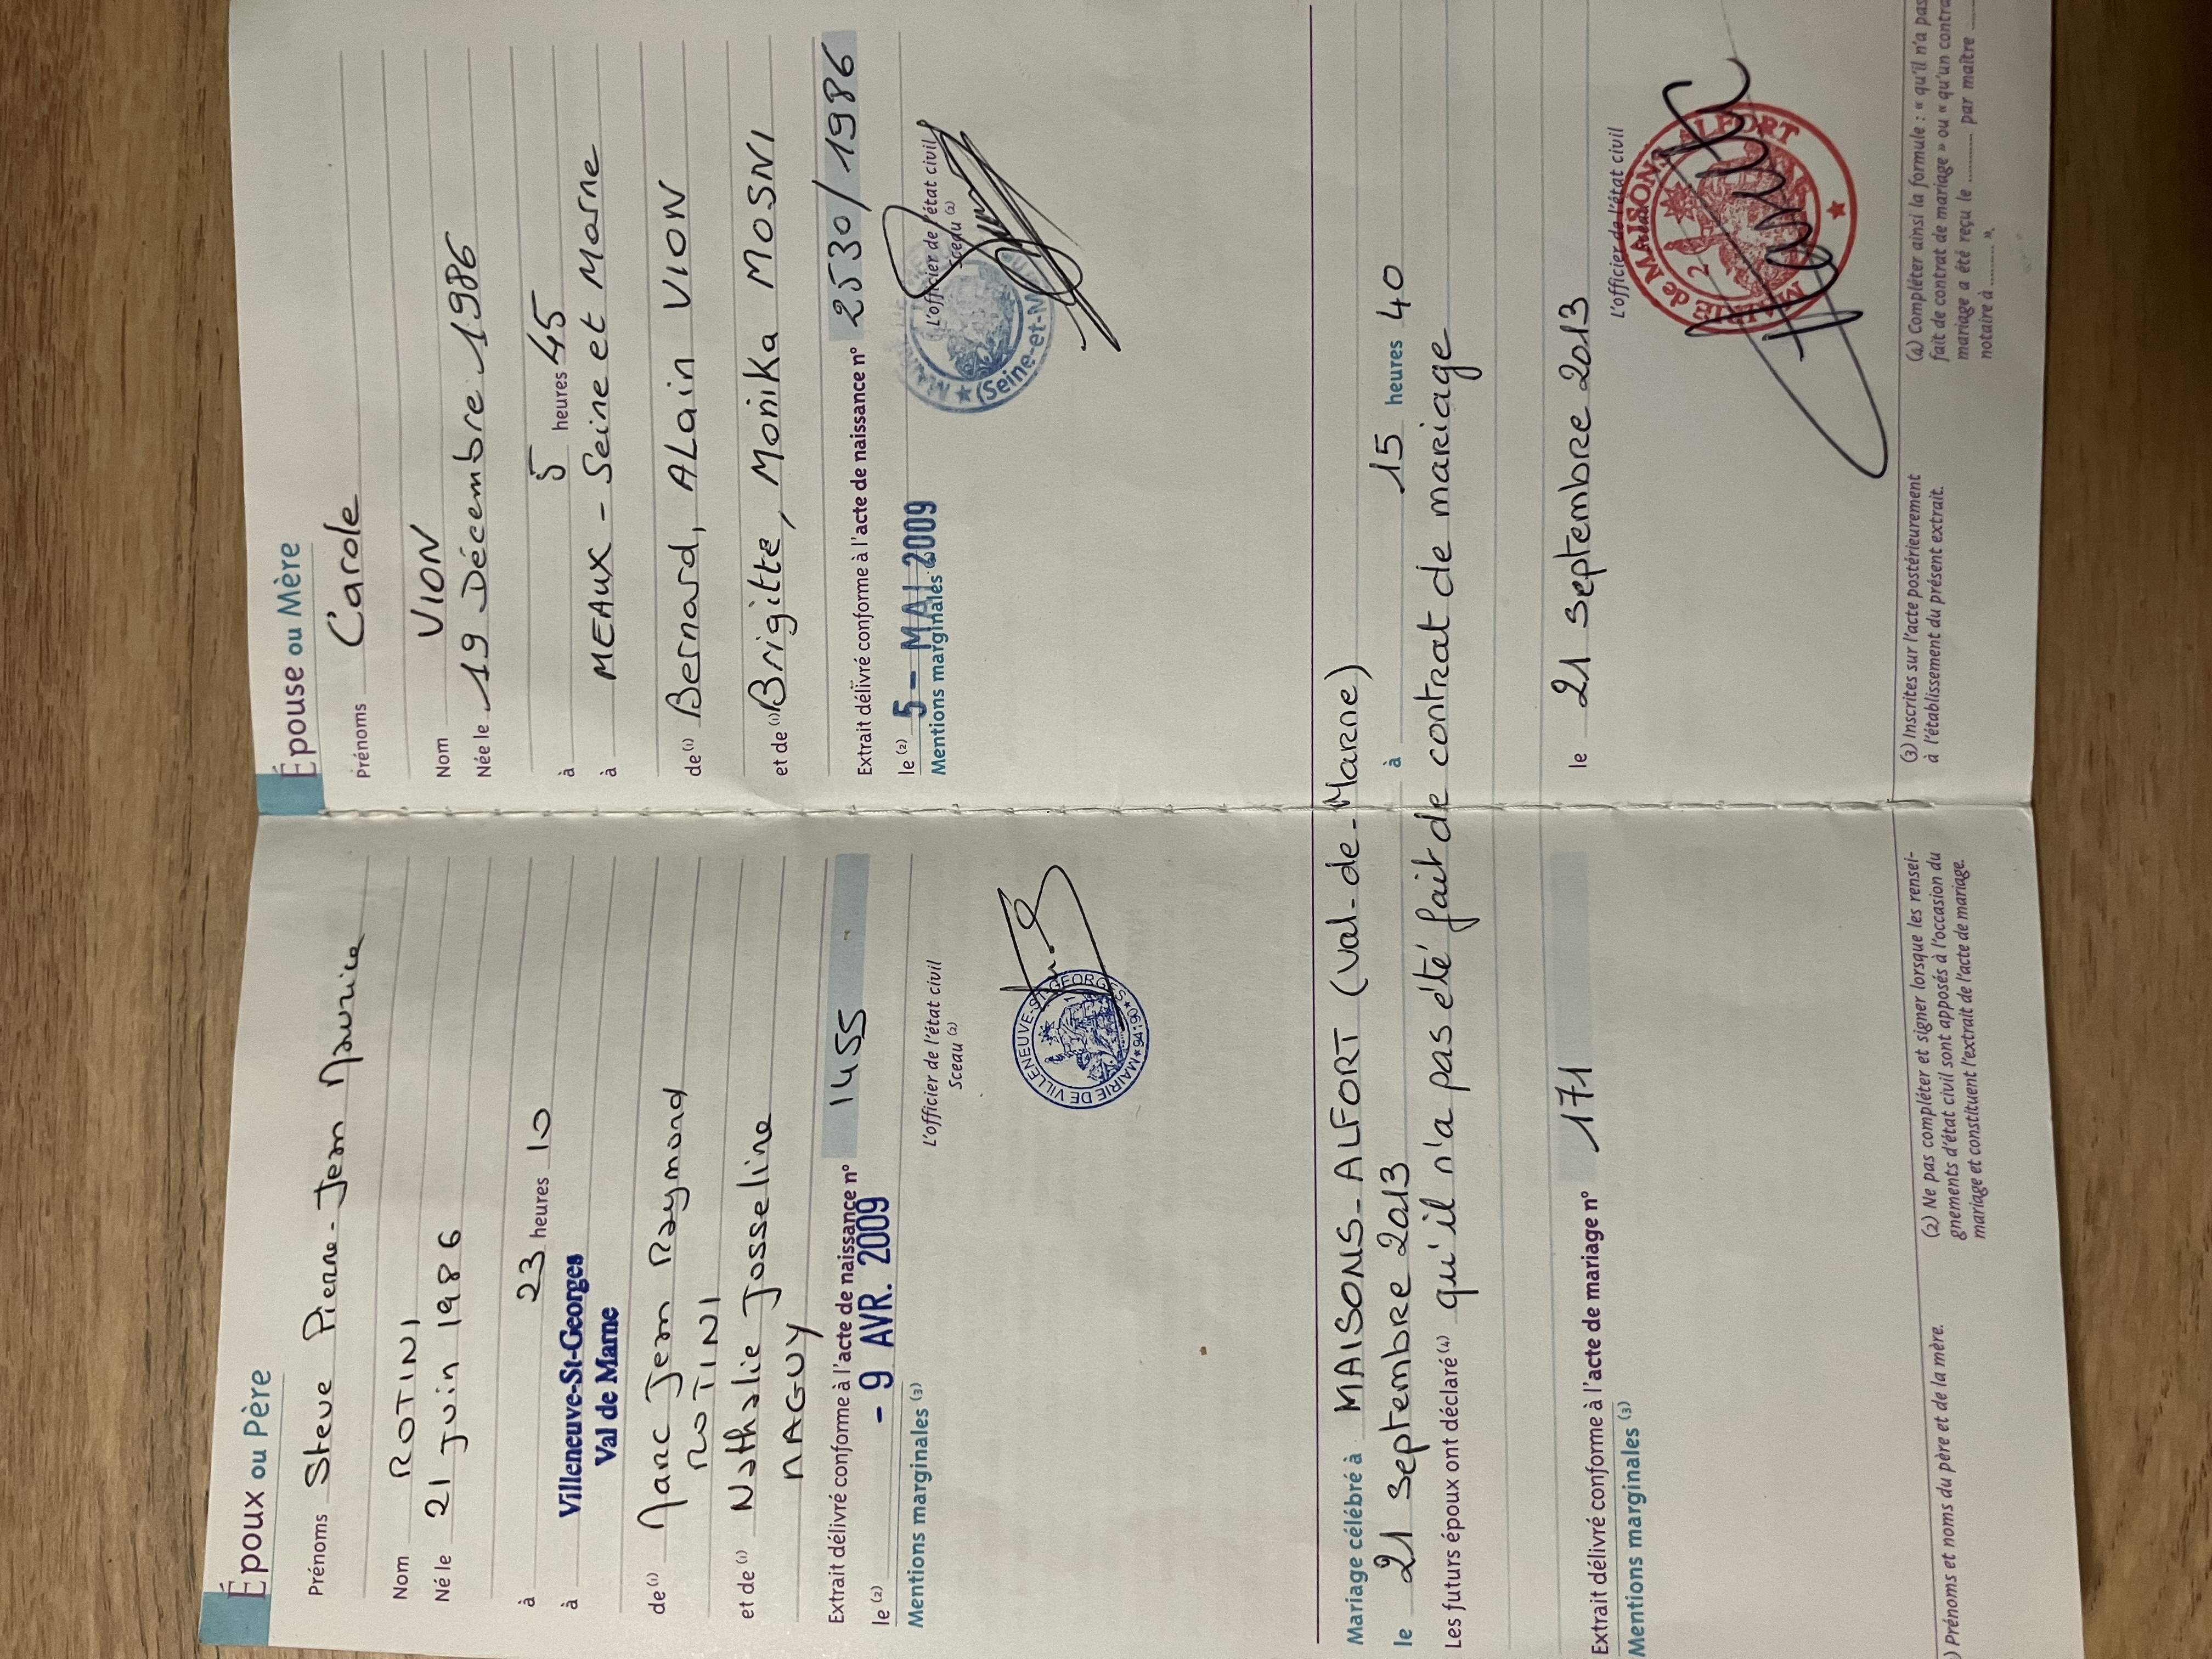 Époux ou Père
Prénoms Steve Pierre-Jean Maurice
Nom ROTINI
Né le 21 Juin 1986
à 23 heures 10
à Villeneuve-St-Georges
Val de Marne
de (1) Marc Jean Raymond
ROTINI
et de (1) Nathalie Josseline
NAGUY
Extrait délivré conforme à l'acte de naissance n° 1455
le (2) - 9 AVR. 2009
Mentions marginales (3)
L'officier de l'état civil
Sceau (2)
MAIRIE DE VILLENEUVE-ST-GEORGES * 94190 *
Épouse ou Mère
Prénoms Carole
Nom VION
Née le 19 Décembre 1986
à 5 heures 45
à MEAUX - Seine et Marne
de (1) Bernard, ALain VION
et de (1) Brigitte, Monika MOSNI
Extrait délivré conforme à l'acte de naissance n° 2530/1986
le (2) 5 - MAI 2009
Mentions marginales (3)
L'officier de l'état civil
Sceau (2)
(Seine-et-M
Mariage célébré à MAISONS-ALFORT (Val-de-Marne)
le 21 septembre 2013 à 15 heures 40
Les futurs époux ont déclaré (4) qu'il n'a pas été fait de contrat de mariage
Extrait délivré conforme à l'acte de mariage n° 171 le 21 septembre 2013
Mentions marginales (3)
L'officier de l'état civil
MAIRIE de MAISONS ALFORT
2
) Prénoms et noms du père et de la mère.
(2) Ne pas compléter et signer lorsque les rensei-
gnements d'état civil sont apposés à l'occasion du
mariage et constituent l'extrait de l'acte de mariage.
(3) Inscrites sur l'acte postérieurement
à l'établissement du présent extrait.
(4) Compléter ainsi la formule : « qu'il n'a pas
fait de contrat de mariage » ou « qu'un contra
mariage a été reçu le .......... par maître
notaire à ......... ».